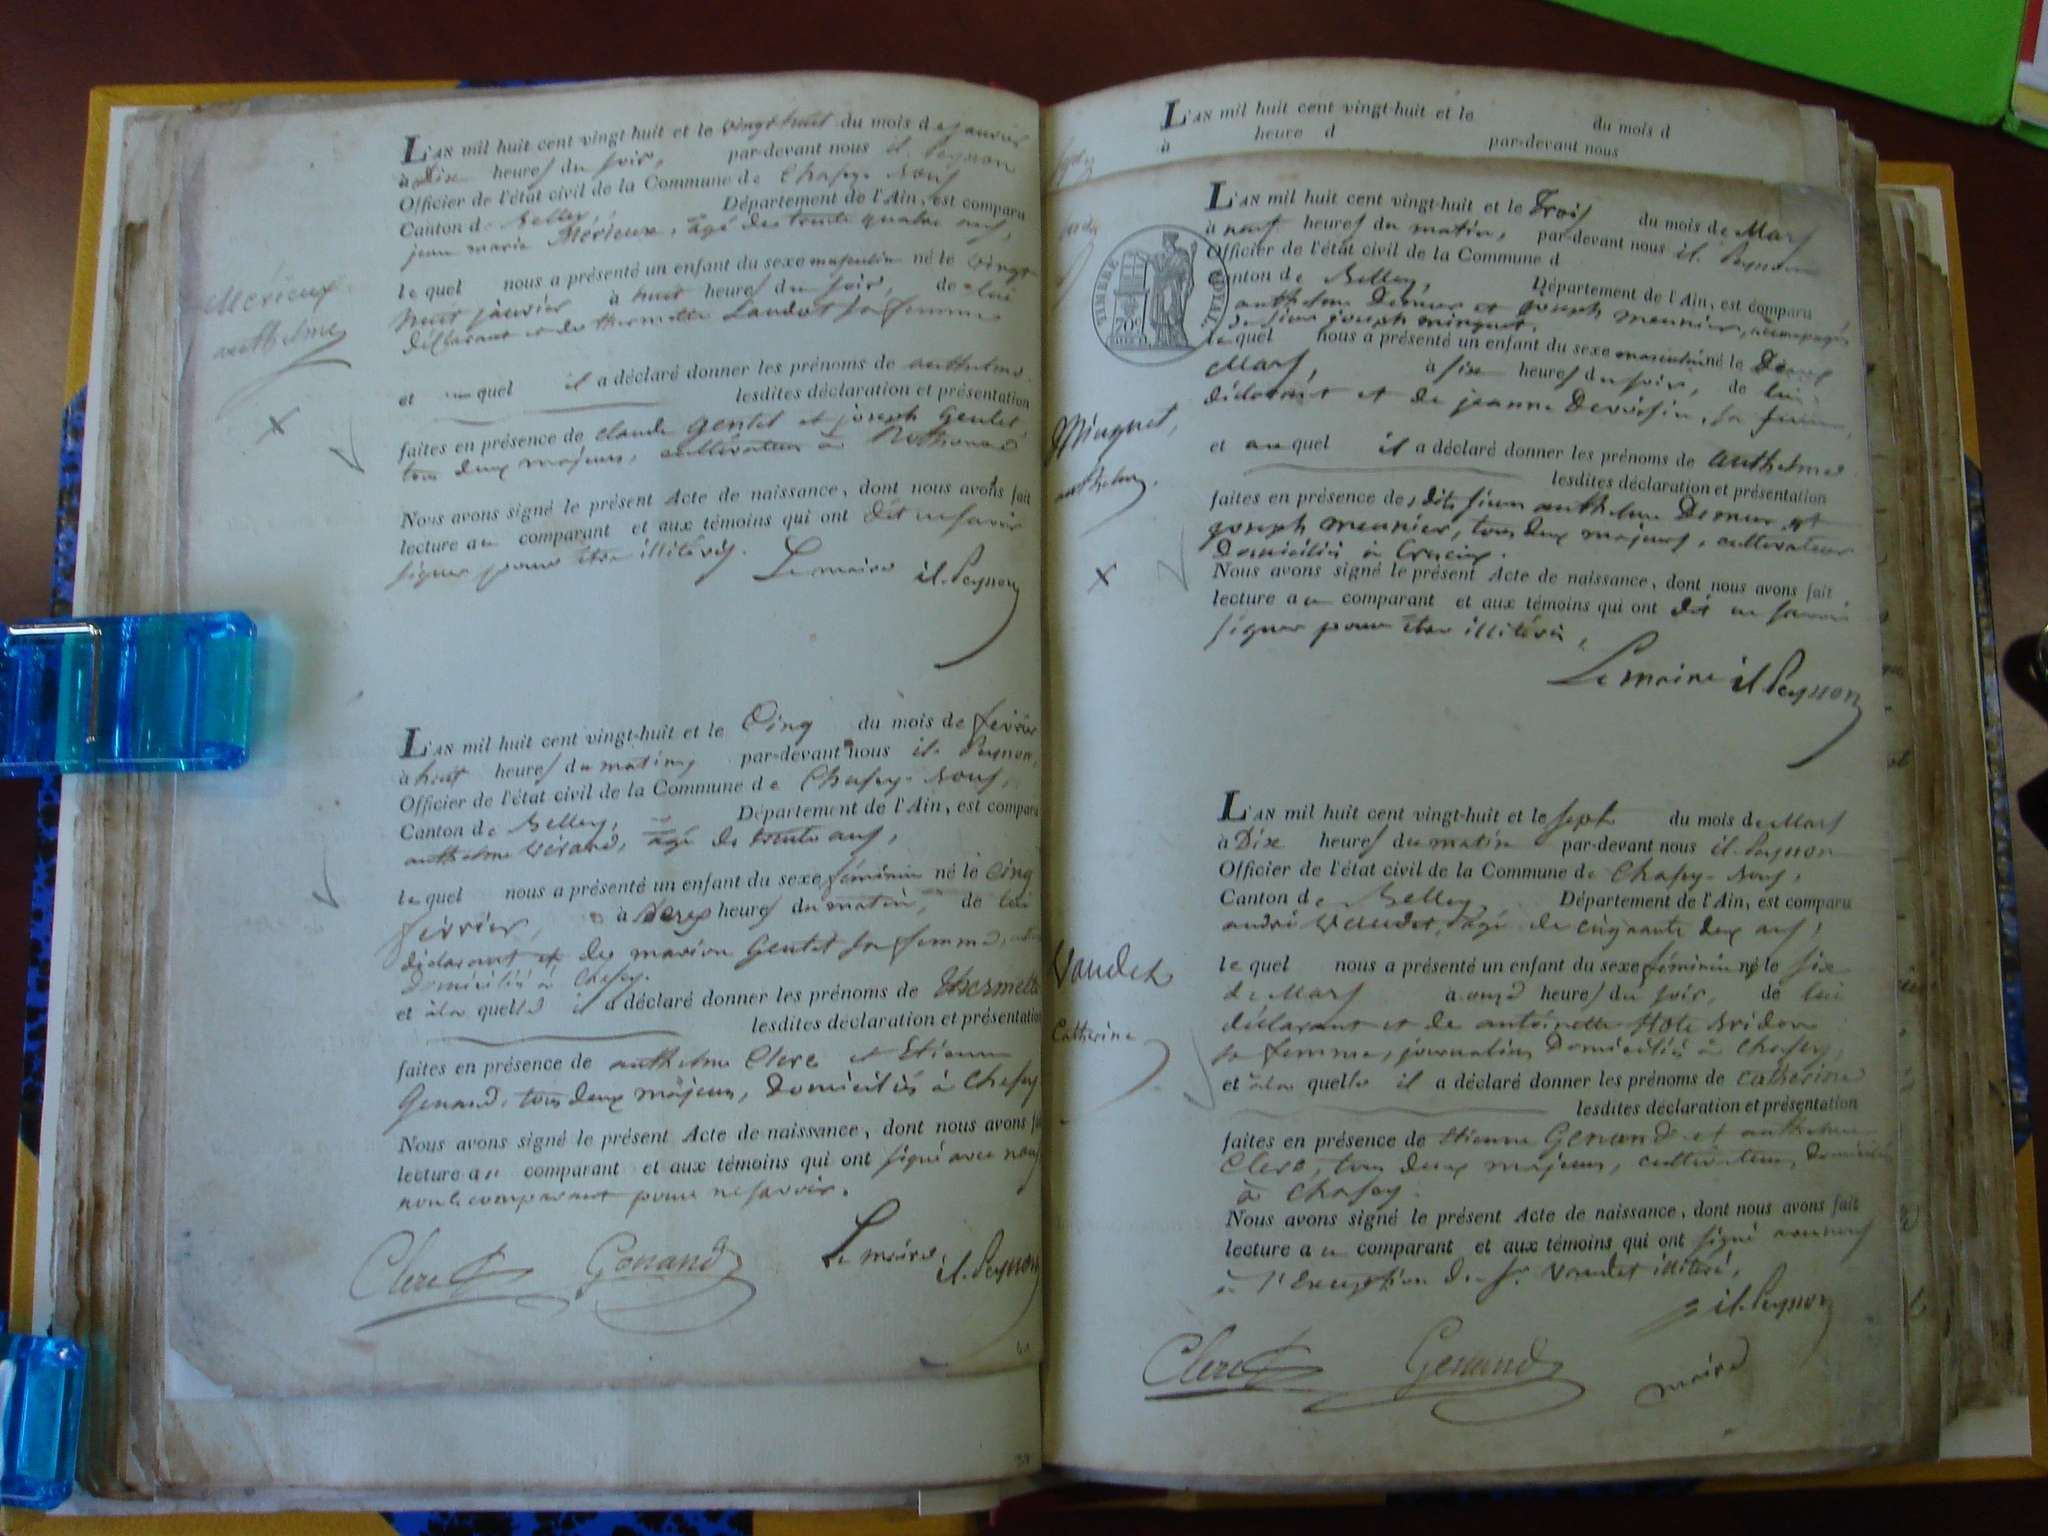 L'AN mil huit cent vingt-huit et le vingt huit du mois de janvier
à Dix heures du soir, par-devant nous il. Peynon
Officier de l'état civil de la Commune de Chasey-Bons
Canton de Belley Département de l'Ain, est comparu
jean marie Mérieux, âgé de trente quatre ans,
lequel nous a présenté un enfant du sexe masculin né le vingt
huit janvier à huit heures du soir, de lui
déclarant et de thermette Laudet sa femme
Mérieux
anthelme
et auquel il a déclaré donner les prénoms de anthelme
lesdites déclaration et présentation
faites en présence de claude Gentet et joseph Gentet
tous deux majeurs, cultivateurs à
Nous avons signé le présent Acte de naissance, dont nous avons fait
lecture au comparant et aux témoins qui ont dit ne savoir
signer pour être illitérés.
Le maire il. Peynon
L'AN mil huit cent vingt-huit et le Cinq du mois de février
à huit heures du matin, par-devant nous il. Peynon,
Officier de l'état civil de la Commune de Chasey-Bons,
Canton de Belley, Département de l'Ain, est comparu
anthelme , âgé de trente ans,
lequel nous a présenté un enfant du sexe féminin né le Cinq
février, à heures du matin, de lui
déclarant et de marion Gentet sa femme,
Domiciliés à Chasey.
et à la quelle il a déclaré donner les prénoms de thermette
lesdites déclaration et présentation
faites en présence de anthelme Clerc et Etienne
Genand, tous deux majeurs, domiciliés à Chasey
Nous avons signé le présent Acte de naissance, dont nous avons fai
lecture au comparant et aux témoins qui ont signé avec nous
non le comparant pour ne savoir.
Clerc Genand Le maire il. Peynon
L'AN mil huit cent vingt-huit et le du mois d
à heure d par-devant nous
L'AN mil huit cent vingt-huit et le Trois du mois de Mars
à neuf heures du matin, par-devant nous il. Peynon
Officier de l'état civil de la Commune d
Canton de Belley, Département de l'Ain, est comparu
anthelme Demur et joseph meunier, accompagnés
de sieur joseph minguet,
TIMBRE ROYAL
70c
lequel nous a présenté un enfant du sexe masculin né le Deux
Mars, à six heures du soir, de lui
déclarant et de jeanne , sa femme,
Minguet,
anthelme.
et auquel il a déclaré donner les prénoms de anthelme
lesdites déclaration et présentation
faites en présence des dits sieurs anthelme Demur et
joseph meunier, tous deux majeurs, cultivateurs
Domiciliés à Crucieux.
Nous avons signé le présent Acte de naissance, dont nous avons fait
lecture au comparant et aux témoins qui ont dit ne savoir
signer pour être illitérés,
Le maire il Peynon
L'AN mil huit cent vingt-huit et le sept du mois de Mars
à Dix heures du matin par-devant nous il. Peynon
Officier de l'état civil de la Commune de Chasey-Bons,
Canton de Belley, Département de l'Ain, est comparu
andré Vaudet, âgé de cinquante deux ans,
lequel nous a présenté un enfant du sexe féminin né le six
de Mars à onze heures du soir, de lui
déclarant et de antoinette
sa femme, journaliers Domiciliés à Chasey,
Vaudet
Catherine
et à la quelle il a déclaré donner les prénoms de catherine
lesdites déclaration et présentation
faites en présence de Etienne Genand et anthelme
Clerc, tous deux majeurs, cultivateurs, domiciliés
à Chasey.
Nous avons signé le présent Acte de naissance, dont nous avons fait
lecture au comparant et aux témoins qui ont signé avec nous
à l'Exception du Sr. Vaudet illitéré,
il. Peynon
Clerc Genand maire